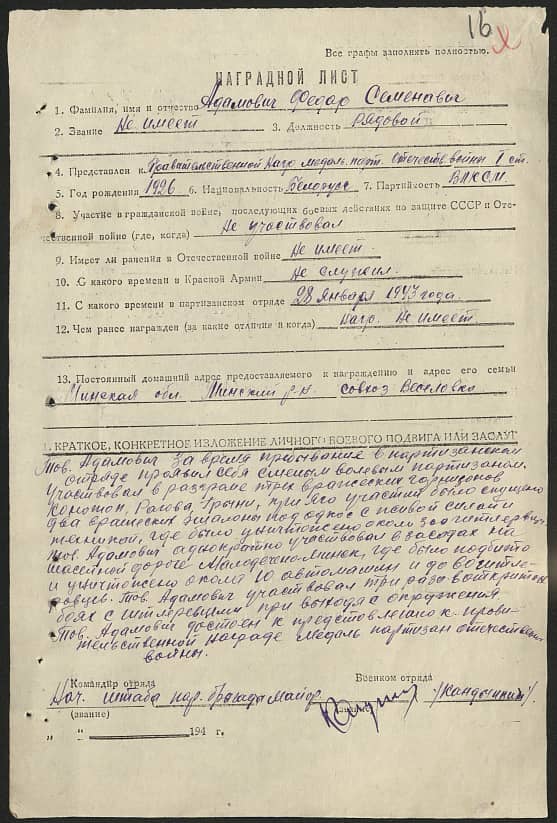 16
Все графы заполнять полностью.
НАГРАДНОЙ ЛИСТ
1. Фамилия, имя и отчество Адамович Федар Семенавич
2. Звание Не имеет 3. Должность рядовой
4. Представлен к Правительственной Нагр. медаль парт. Отечеств войны I ст.
5. Год рождения 1926 6. Национальность Белорусс 7. Партийность ВЛКСМ.
8. Участие в гражданской войне, последующих боевых действиях по защите СССР и Оте-
чественной войне (где, когда) Не участвовал
9. Имеет ли ранения в Отечественной войне Не имеет.
10. С какого времени в Красной Армии Не служил.
11. С какого времени в партизанском отряде 28 января 1943 года.
12. Чем ранее награжден (за какие отличия и когда) нагр. Не имеет
13. Постоянный домашний адрес предоставляемого к награждению и адрес его семьи
Минская обл. Минский р-н. совхоз Веселовка
1. КРАТКОЕ, КОНКРЕТНОЕ ИЗЛОЖЕНИЕ ЛИЧНОГО БОЕВОГО ПОДВИГА ИЛИ ЗАСЛУГ
Тов. Адамович за время пребывание в партизанском
отряде проявил себя смелым волевым партизаном.
Участвовал в разгроме трех вражеских гарнизонов
Рагова, при его участии было спущено
два вражеских эшалоны под откос с живой силай и
техникой, где было уничтожено около 300 гитлеровцев.
Тов. Адамович аднократно участвовал в засадах на
шассейной дороге Молодечно-минск, где было подбито
и уничтожено около 10 автомашин и до 80 гитле-
ровцев. Тов. Адамович участвовал три раза в открытых
боях с гитлеровцами при выходе с окружения
Тов. Адамович достоен к представлению к прави-
тельственной награде медаль партизан отечествен
войны.
Командир отряда Военком отряда
Нач. штаба пар. бригады майор /Кандыкин/.
(звание)
„ “ 194 г.